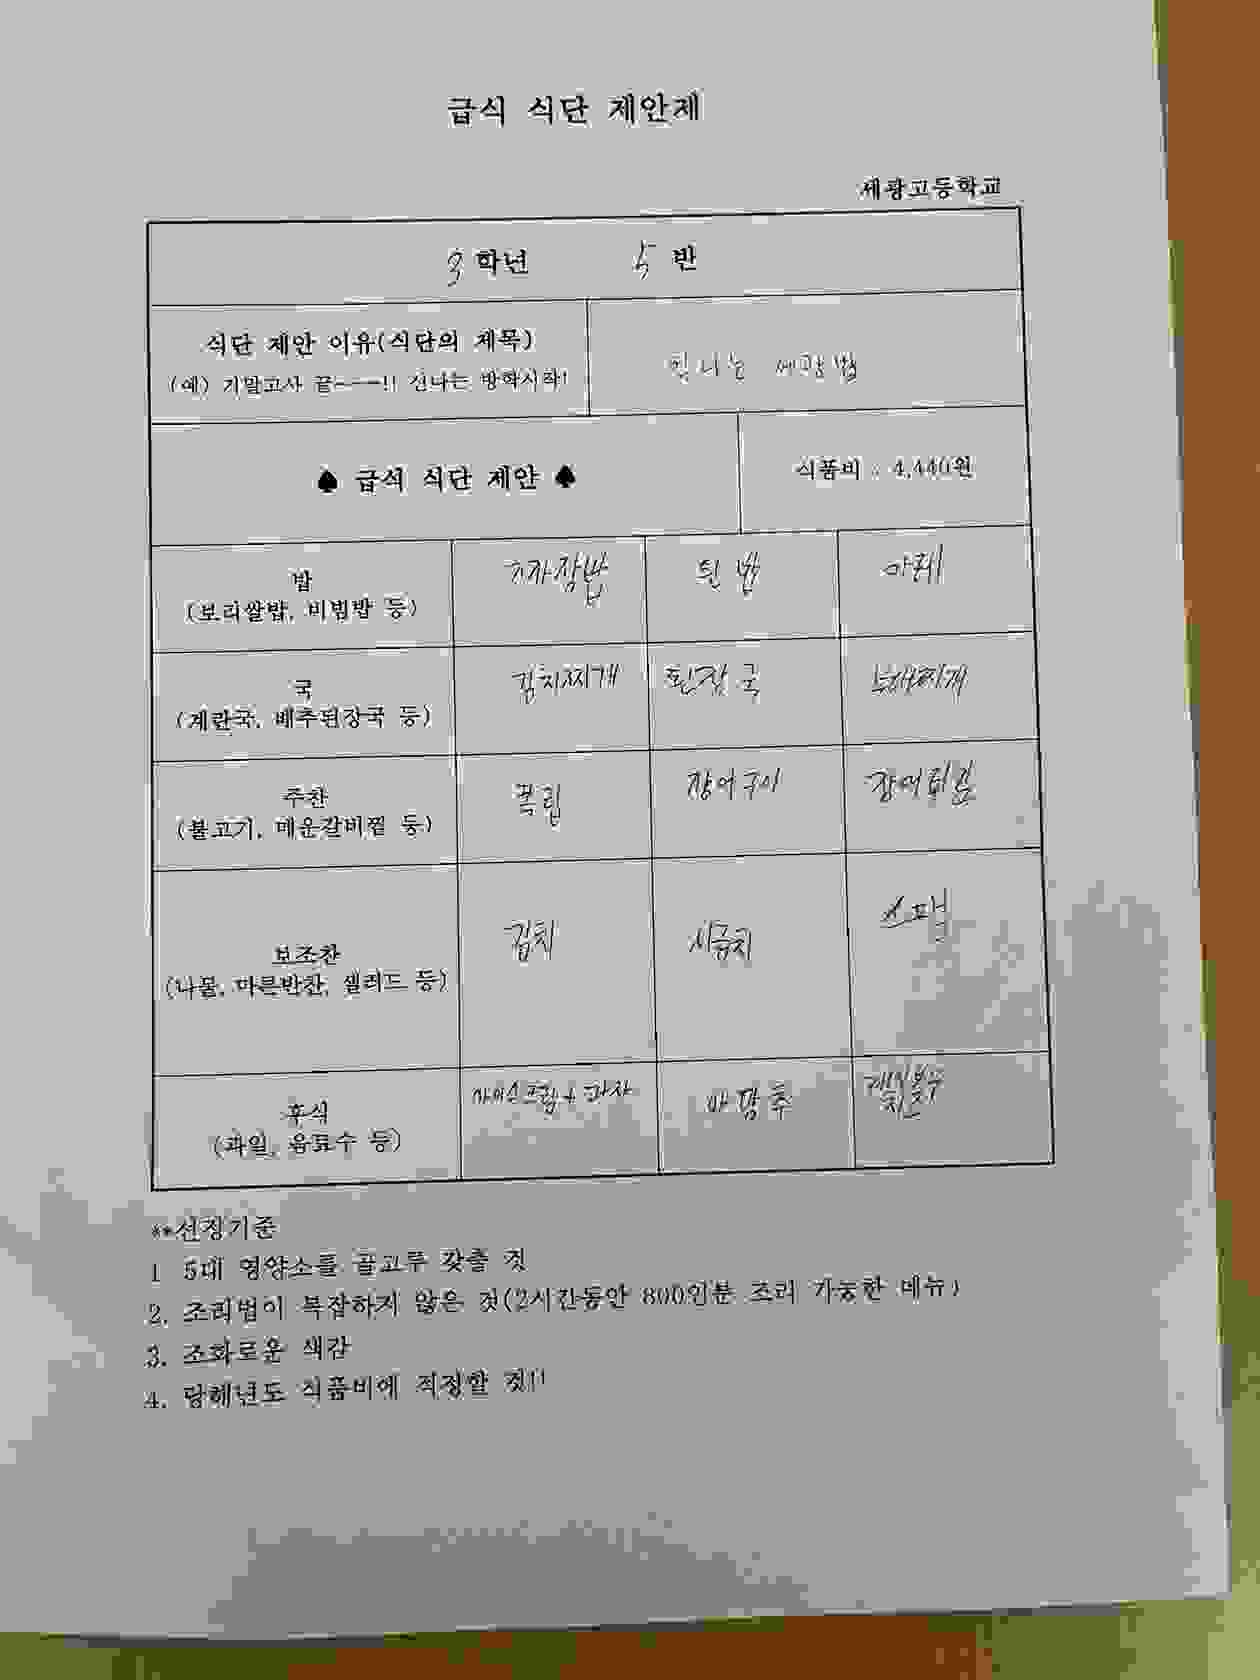 급식 식단 제안제
세광고등학교
3 학년 5 반
식단 제안 이유(식단의 제목)
(예) 기말고사 끝----!! 신나는 방학시작!
힘나는 세광밥
♠ 급식 식단 제안 ♠
식품비 : 4,440원
밥
(보리쌀밥, 비빔밥 등)
흰밥
카레
국
(계란국, 배추된장국 등)
김치찌개
된장국
부대찌개
주찬
(불고기, 매운갈비찜 등)
폭립
장어구이
장어튀김
보조찬
(나물, 마른반찬, 샐러드 등)
김치
시금치
스팸
후식
(과일, 음료수 등)
아이스크림 + 과자
**선정기준
1. 5대 영양소를 골고루 갖출 것
2. 조리법이 복잡하지 않은 것(2시간동안 800인분 조리 가능한 메뉴)
3. 조화로운 색감
4. 당해년도 식품비에 적정할 것!!